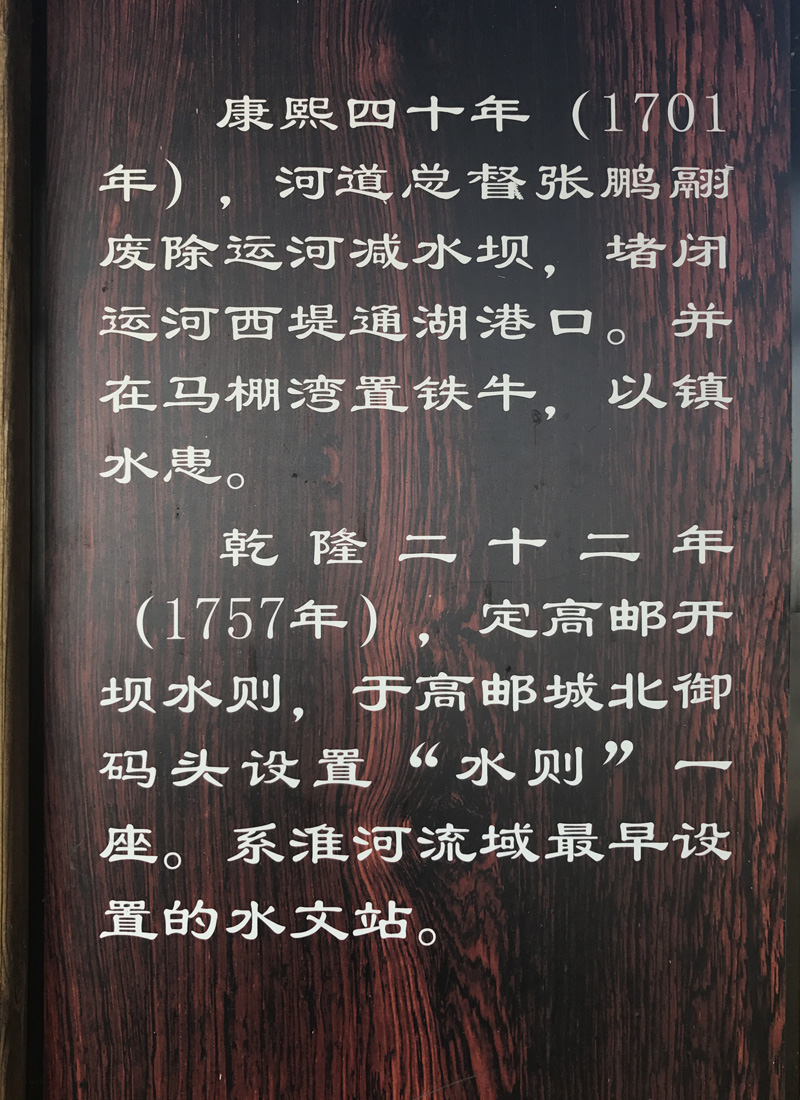 康熙四十年（1701
年），河道总督张鹏翮
废除运河减水坝，堵闭
运河西堤通湖港口。并
在马棚湾置铁牛，以镇
水患。
乾隆二十二年
（1757年），定高邮开
坝水则，于高邮城北御
码头设置“水则”一
座。系淮河流域最早设
置的水文站。